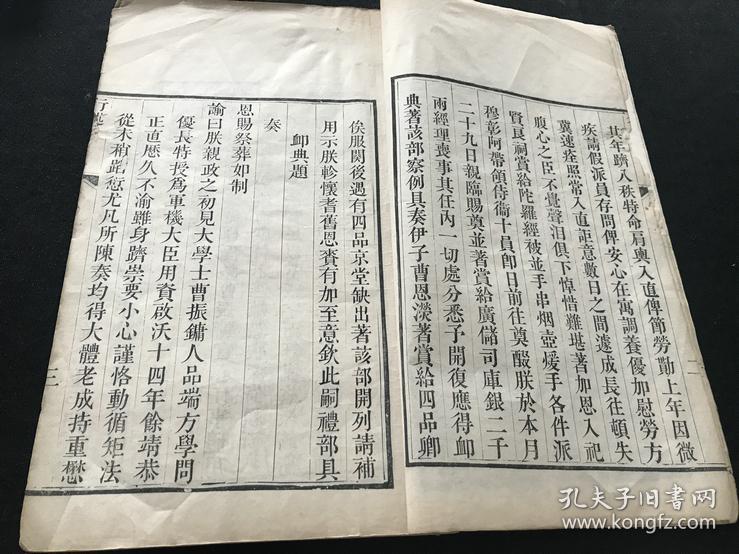 廿年躋八秩特命肩輿入直俾節勞勩上年因微
疾請假派員存問俾安心在寓調養優加慰勞方
冀速痊照常入直詎意數日之間遽成長往頓失
腹心之臣不覺聲淚俱下悼惜難堪著加恩入祀
賢良祠賞給陀羅經被並手串烟壺煖手各件派
穆彰阿帶領侍衞十員卽日前往奠醊朕於本月
二十九日親臨賜奠並著賞給廣儲司庫銀二千
兩經理喪事其任內一切處分悉予開復應得卹
典著該部察例具奏伊子曹恩濙著賞給四品卿
二
俟服闋後遇有四品京堂缺出著該部開列請補
用示朕軫懷耆舊恩賚有加至意欽此嗣禮部具
卹典題
奏
恩賜祭葬如制
諭曰朕親政之初見大學士曹振鏞人品端方學問
優長特授爲軍機大臣用資啟沃十四年餘靖恭
正直歷久不渝雖身躋崇要小心謹恪動循矩法
從未稍踰愆尤凡所陳奏均得大體老成持重懋
三
孔夫子旧书网
www.kongfz.com